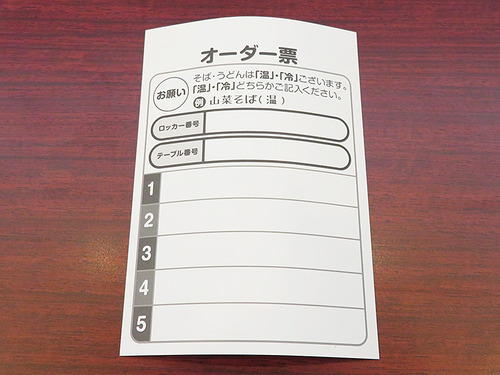 オーダー票
お願い
そば・うどんは「温」・「冷」ございます。
「温」・「冷」どちらかご記入ください。
例 山菜そば(温)
ロッカー番号
テーブル番号
1
2
3
4
5